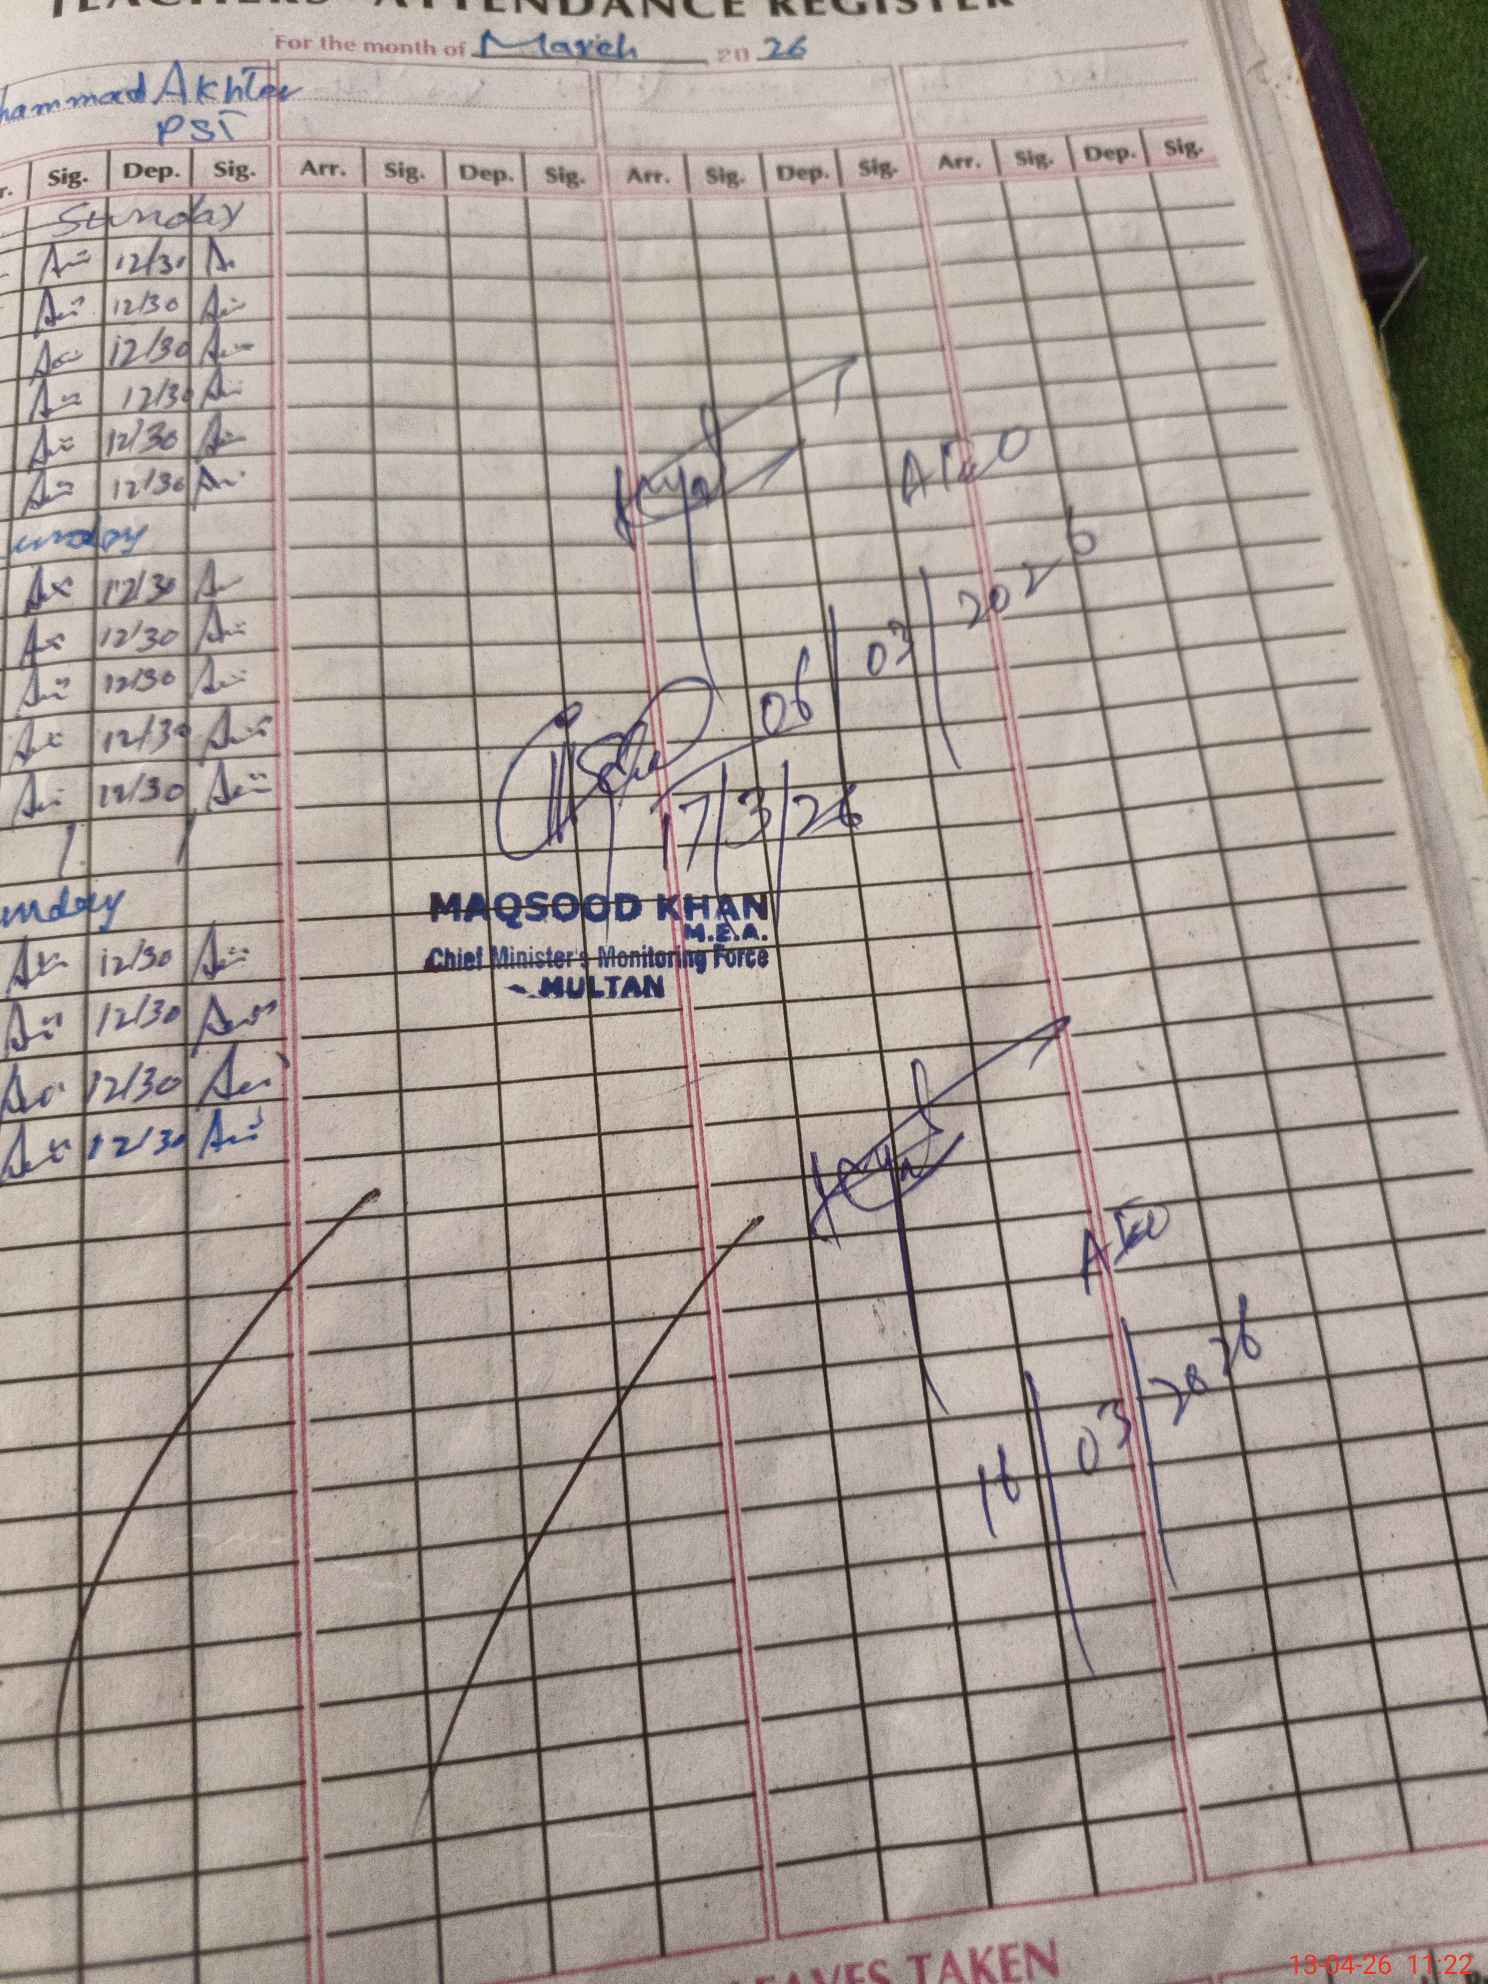 TEACHERS' ATTENDANCE REGISTER
For the month of March 2026
hammad Akhter
PST
r. Sig. Dep. Sig. Arr. Sig. Dep. Sig. Arr. Sig. Dep. Sig. Arr. Sig. Dep. Sig.
Sunday
12/30
12/30
12/30
12/30
12/30
12/30
unday
12/30
12/30
12/30
12/30
12/30
unday
12/30
12/30
12/30
12/30
AEO
06/03/2026
17/3/26
MAQSOOD KHAN
M.E.A.
Chief Minister's Monitoring Force
MULTAN
AEO
16/03/2026
EAVES TAKEN
13-04-26 11:22